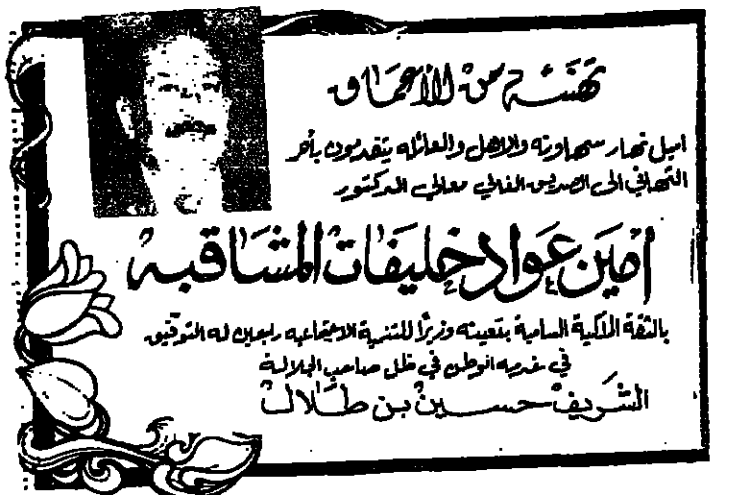 تهنئة من الأعماق
اميل نهار سماوته والاهل والعائله يتقدمون بأحر
التهاني الى الصديق الغالي معالي الدكتور
امين عواد خليفات المشاقبه
بالثقة الملكية السامية بتعيينه وزيرًا للتنمية الاجتماعيه راجين له التوفيق
في خدمه الوطن في ظل صاحب الجلالة
الشريف حسين بن طلال